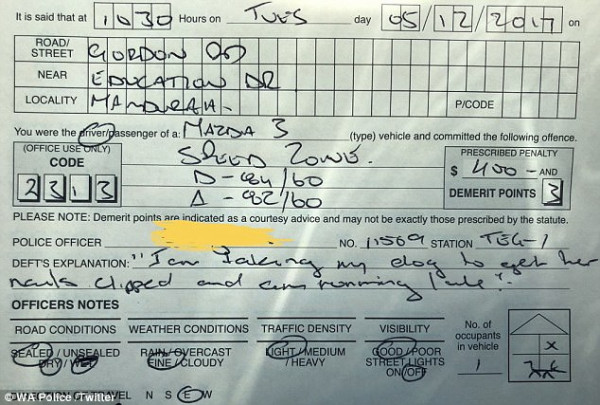 It is said that at 1030 Hours on TUES day 05/12/2017 on
ROAD/STREET GORDON RD
NEAR EDUCATION DR
LOCALITY MANDURAH- P/CODE
You were the driver/passenger of a: MAZDA 3 (type) vehicle and committed the following offence.
(OFFICE USE ONLY) CODE 2313
SPEED ZONE.
D-84/60
A-82/60
PRESCRIBED PENALTY
$400-AND
DEMERIT POINTS 3
PLEASE NOTE: Demerit points are indicated as a courtesy advice and may not be exactly those prescribed by the statute.
POLICE OFFICER NO. 11569 STATION TEG-1
DEFT'S EXPLANATION: "I am taking my dog to get her
nails clipped and am running late".
OFFICERS NOTES
ROAD CONDITIONS WEATHER CONDITIONS TRAFFIC DENSITY VISIBILITY No. of occupants in vehicle
SEALED/UNSEALED RAIN/OVERCAST LIGHT/MEDIUM GOOD/POOR X
DRY/WET FINE/CLOUDY /HEAVY STREET LIGHTS 1
ON/OFF
TRAVEL N S E W
© WA Police /Twitter